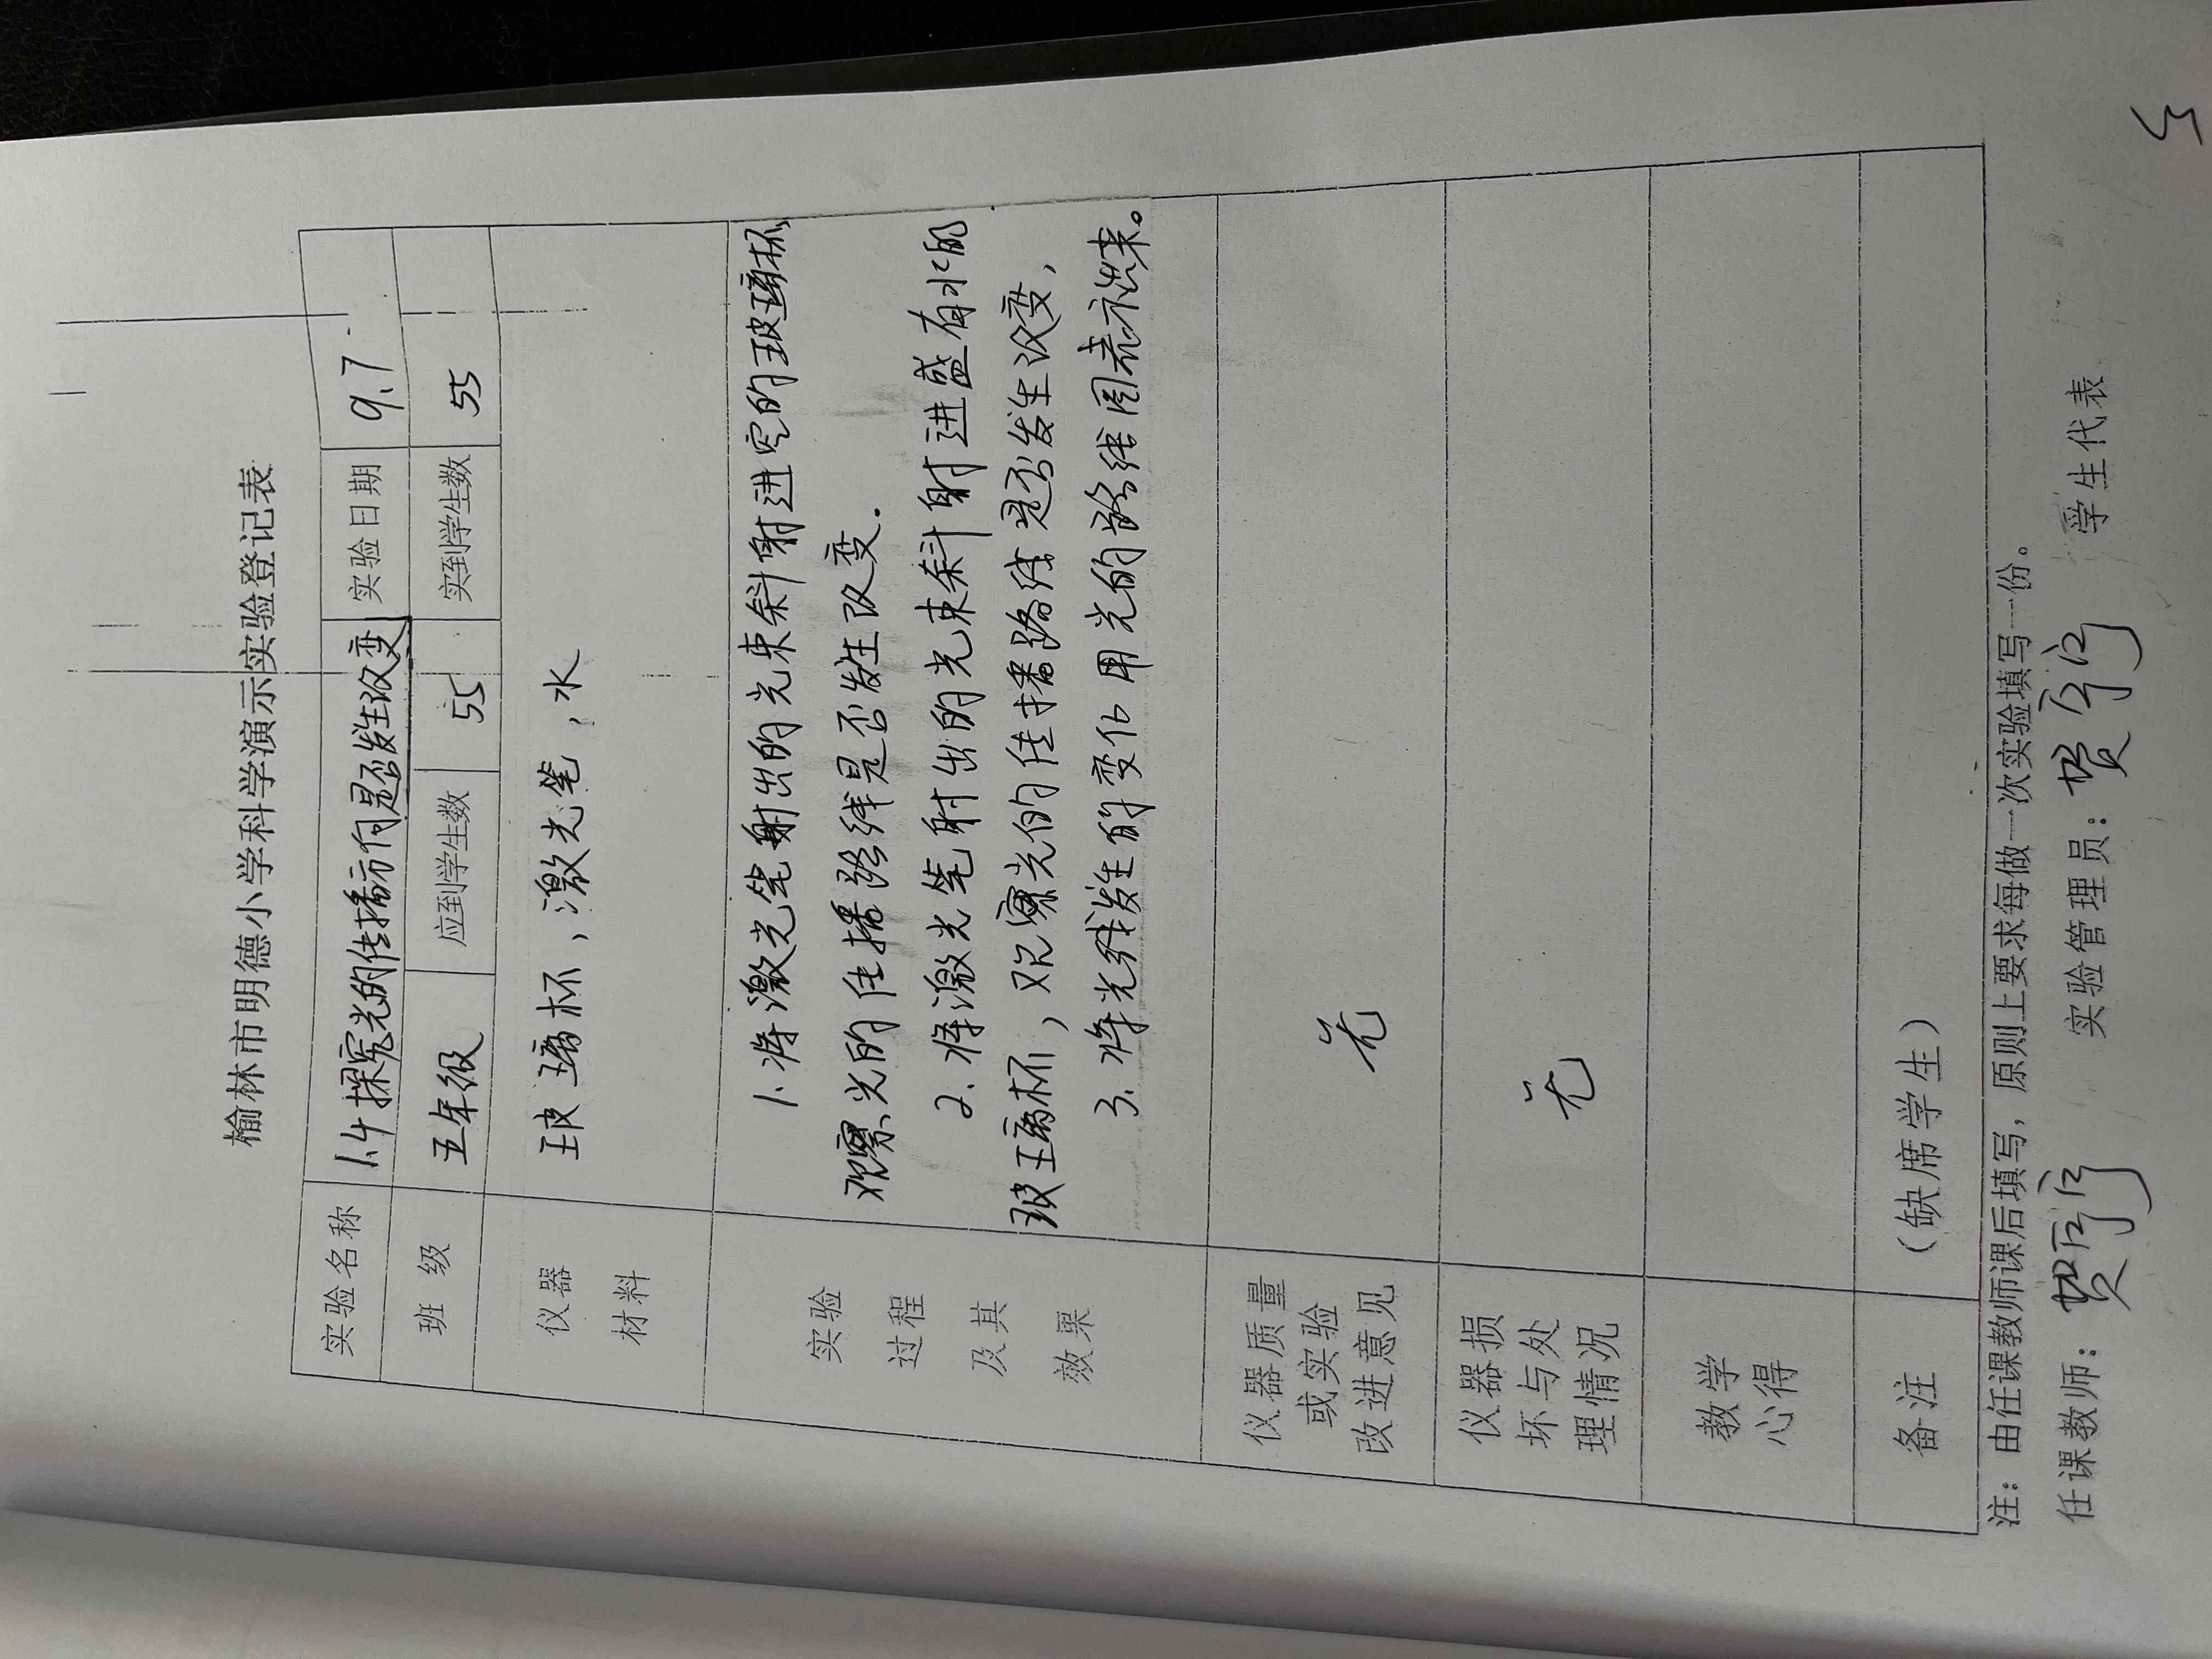 榆林市明德小学科学演示实验登记表
实验名称 1.4探究光的传播方向是否发生改变 实验日期 9.7
班 级 五年级 应到学生数 55 实到学生数 55
仪器
材料
玻璃杯，激光笔，水
实验
过程
及其
效果
1.将激光笔射出的光束斜射进空的玻璃杯
观察光的传播路线是否发生改变.
2.将激光笔射出的光束斜射进盛有水的
玻璃杯，观察光的传播路线是否发生改变，
3.将光线发生的变化用光的路线图表示出来。
仪器质量
或实验
改进意见
无
仪器损
坏与处
理情况
无
教学
心得
备注 （缺席学生）
注：由任课教师课后填写，原则上要求每做一次实验填写一份。
任课教师： 实验管理员： 学生代表
5